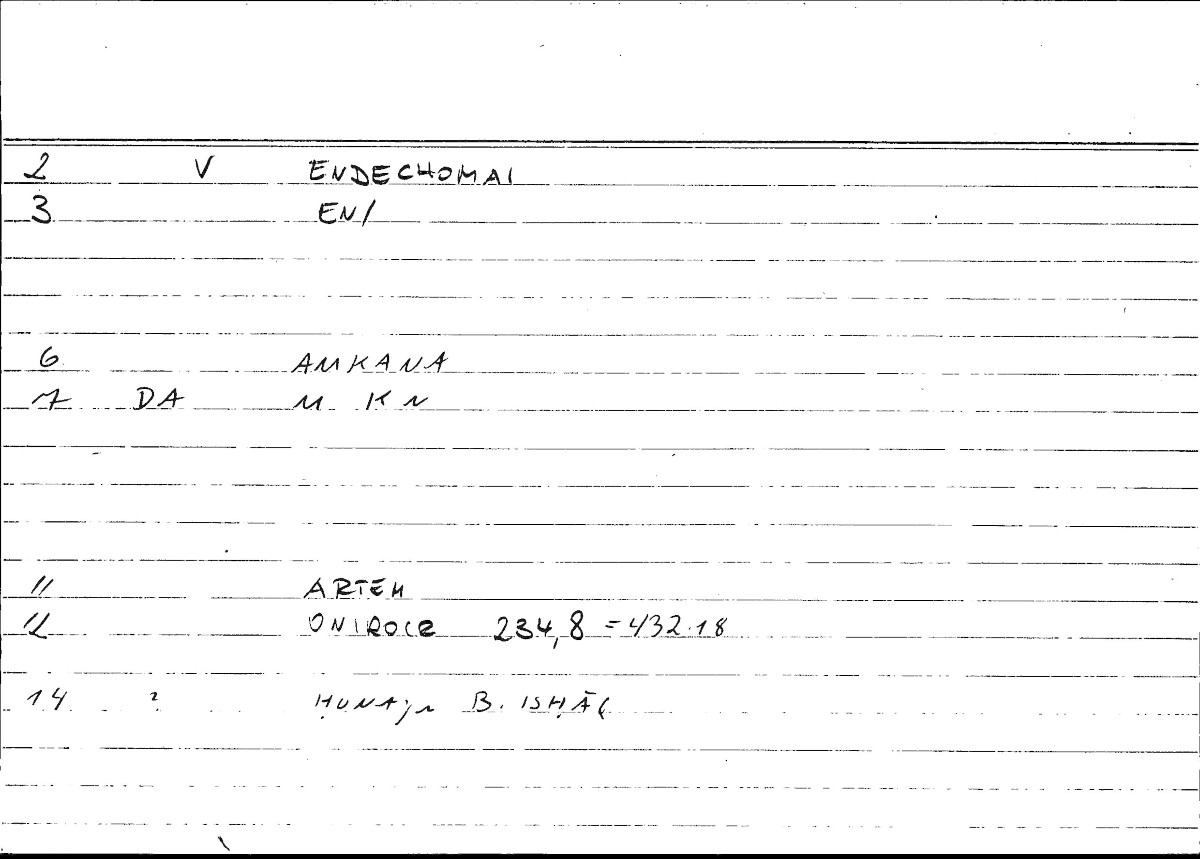 2 V ENDECHOMAI
3 EN/
6 AMKANA
7 DA M KN
11 ARTEM
12 ONIROCR 234,8 = 432.18
14 ? ḤUNAJN B. ISḤĀQ